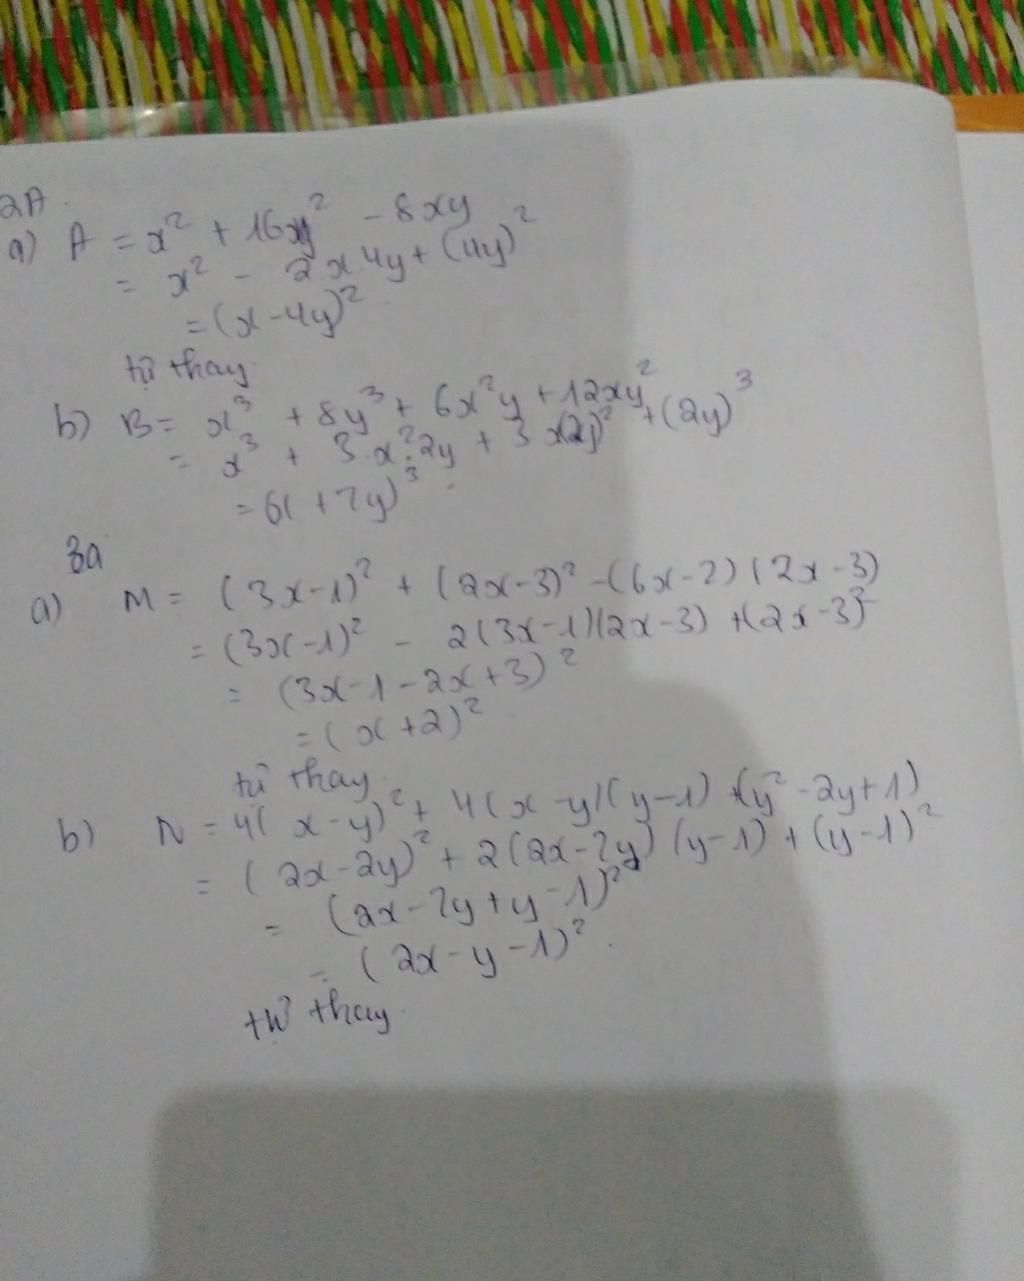 2A.
a) A = x² + 16y² - 8xy
= x² - 2x.4y + (4y)²
= (x - 4y)²
tự thay.
b) B = x³ + 8y³ + 6x²y + 12xy²
= x³ + 3.x².2y + 3x(2y)² + (2y)³
= (x + 2y)³.
3a
a) M = (3x-1)² + (2x-3)² - (6x-2)(2x-3)
= (3x-1)² - 2(3x-1)(2x-3) + (2x-3)²
= (3x-1-2x+3)²
= (x+2)².
tự thay.
b) N = 4(x-y)² + 4(x-y)(y-1) + (y²-2y+1)
= (2x-2y)² + 2(2x-2y)(y-1) + (y-1)²
= (2x-2y+y-1)²
= (2x-y-1)².
tự thay.